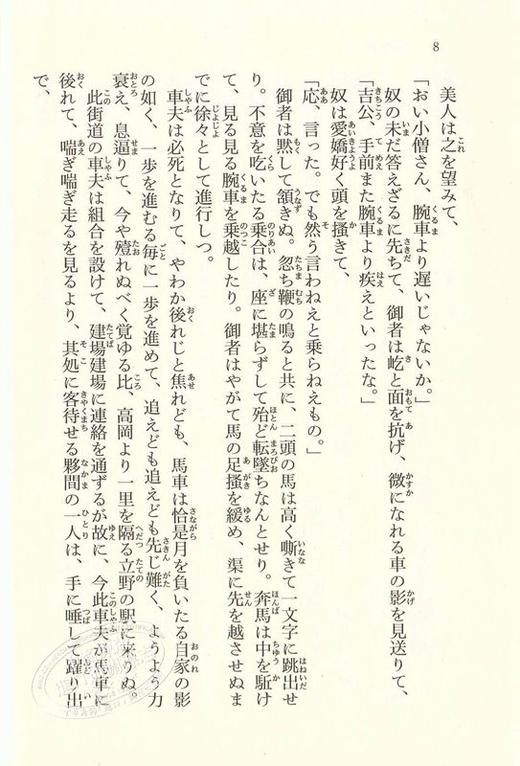 8
美人は之を望みて、
「おい小僧さん、腕車より遅いじゃないか。」
奴の未だ答えざるに先ちて、御者は屹と面を抗げ、微になれる車の影を見送りて、
「吉公、手前また腕車より疾えといったな。」
奴は愛嬌好く頭を搔きて、
「応、言った。でも然う言わねえと乗らねえもの。」
御者は黙して頷きぬ。忽ち鞭の鳴ると共に、二頭の馬は高く嘶きて一文字に跳出せ
り。不意を吃いたる乗合は、座に堪らずして殆ど転墜ちなんとせり。奔馬は中を駈け
て、見る見る腕車を乗越したり。御者はやがて馬の足搔を緩め、渠に先を越させぬま
でに徐々として進行しつ。
車夫は必死となりて、やわか後れじと焦れども、馬車は恰是月を負いたる自家の影
の如く、一歩を進むる毎に一歩を進めて、追えども追えども先じ難く、ようよう力
衰え、息逼りて、今や殪れぬべく覚ゆる比、高岡より一里を隔る立野の駅に来りぬ。
此街道の車夫は組合を設けて、建場建場に連絡を通ずるが故に、今此車夫が馬車に
後れて、喘ぎ喘ぎ走るを見るより、其処に客待せる夥間の一人は、手に唾して躍り出
で、